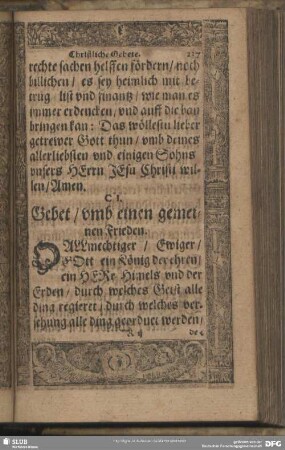 Christliche Gebete. 217
rechte sachen helffen fördern / noch
billichen / es sey heimlich mit be-
trug / list vnd finantz / wie man es
immer erdencken / vnd auff die ban
bringen kan: Das wöllestu lieber
getrewer Gott thun / vmb deines
allerliebsten vnd einigen Sohns
vnsers HErrn JEsu Christi wil-
len / Amen.
C I.
Gebet / vmb einen gemei-
nen Frieden.
O ALLmechtiger / Ewiger /
GOtt ein König der ehren /
ein HERr Himels vnd der
Erden / durch welches Geist alle
ding regieret / durch welches ver-
sehung alle ding geordnet werden /
SLUB
DFG